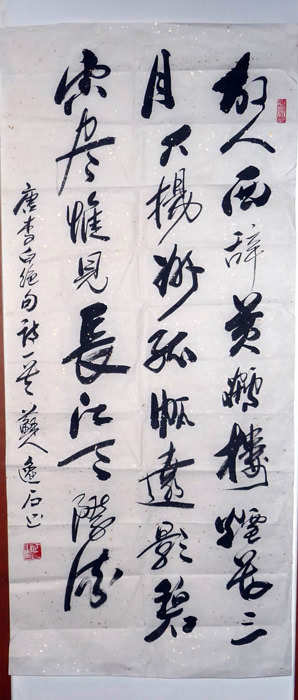 故人西辞黄鶴樓煙花三
月下揚州孤帆遠影碧
空尽惟見長江天際流
唐李白絕句詩一首